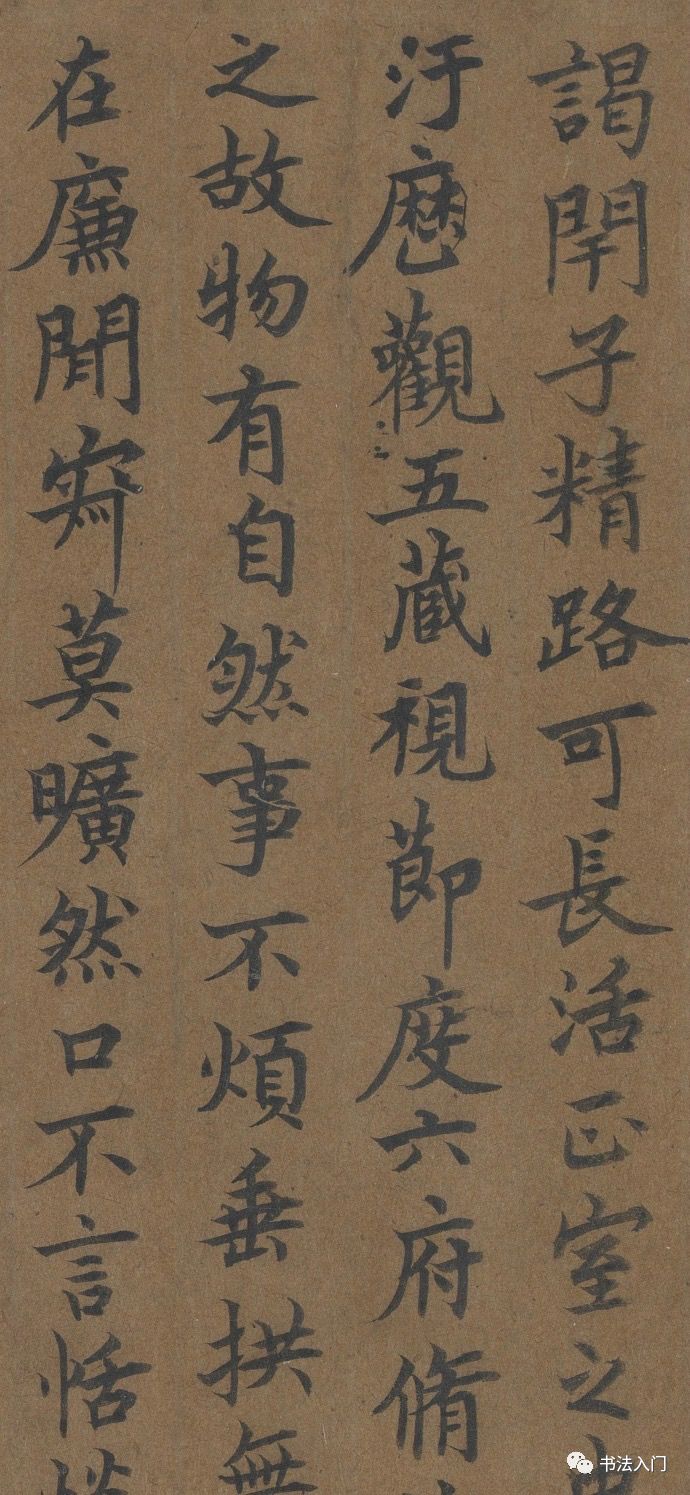 謁閇子精路可長活正室之
汙歷觀五蔵視節度六府脩
之故物有自然事不煩垂拱無
在廉閒寂莫曠然口不言恬
书法入门